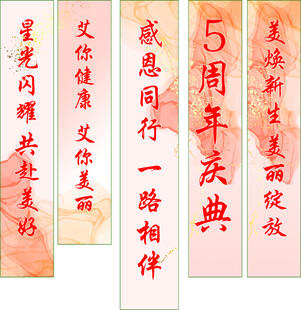 星光闪耀 共赴美好
艾你健康 艾你美丽
感恩同行 一路相伴
5周年庆典
美焕新生 美丽绽放